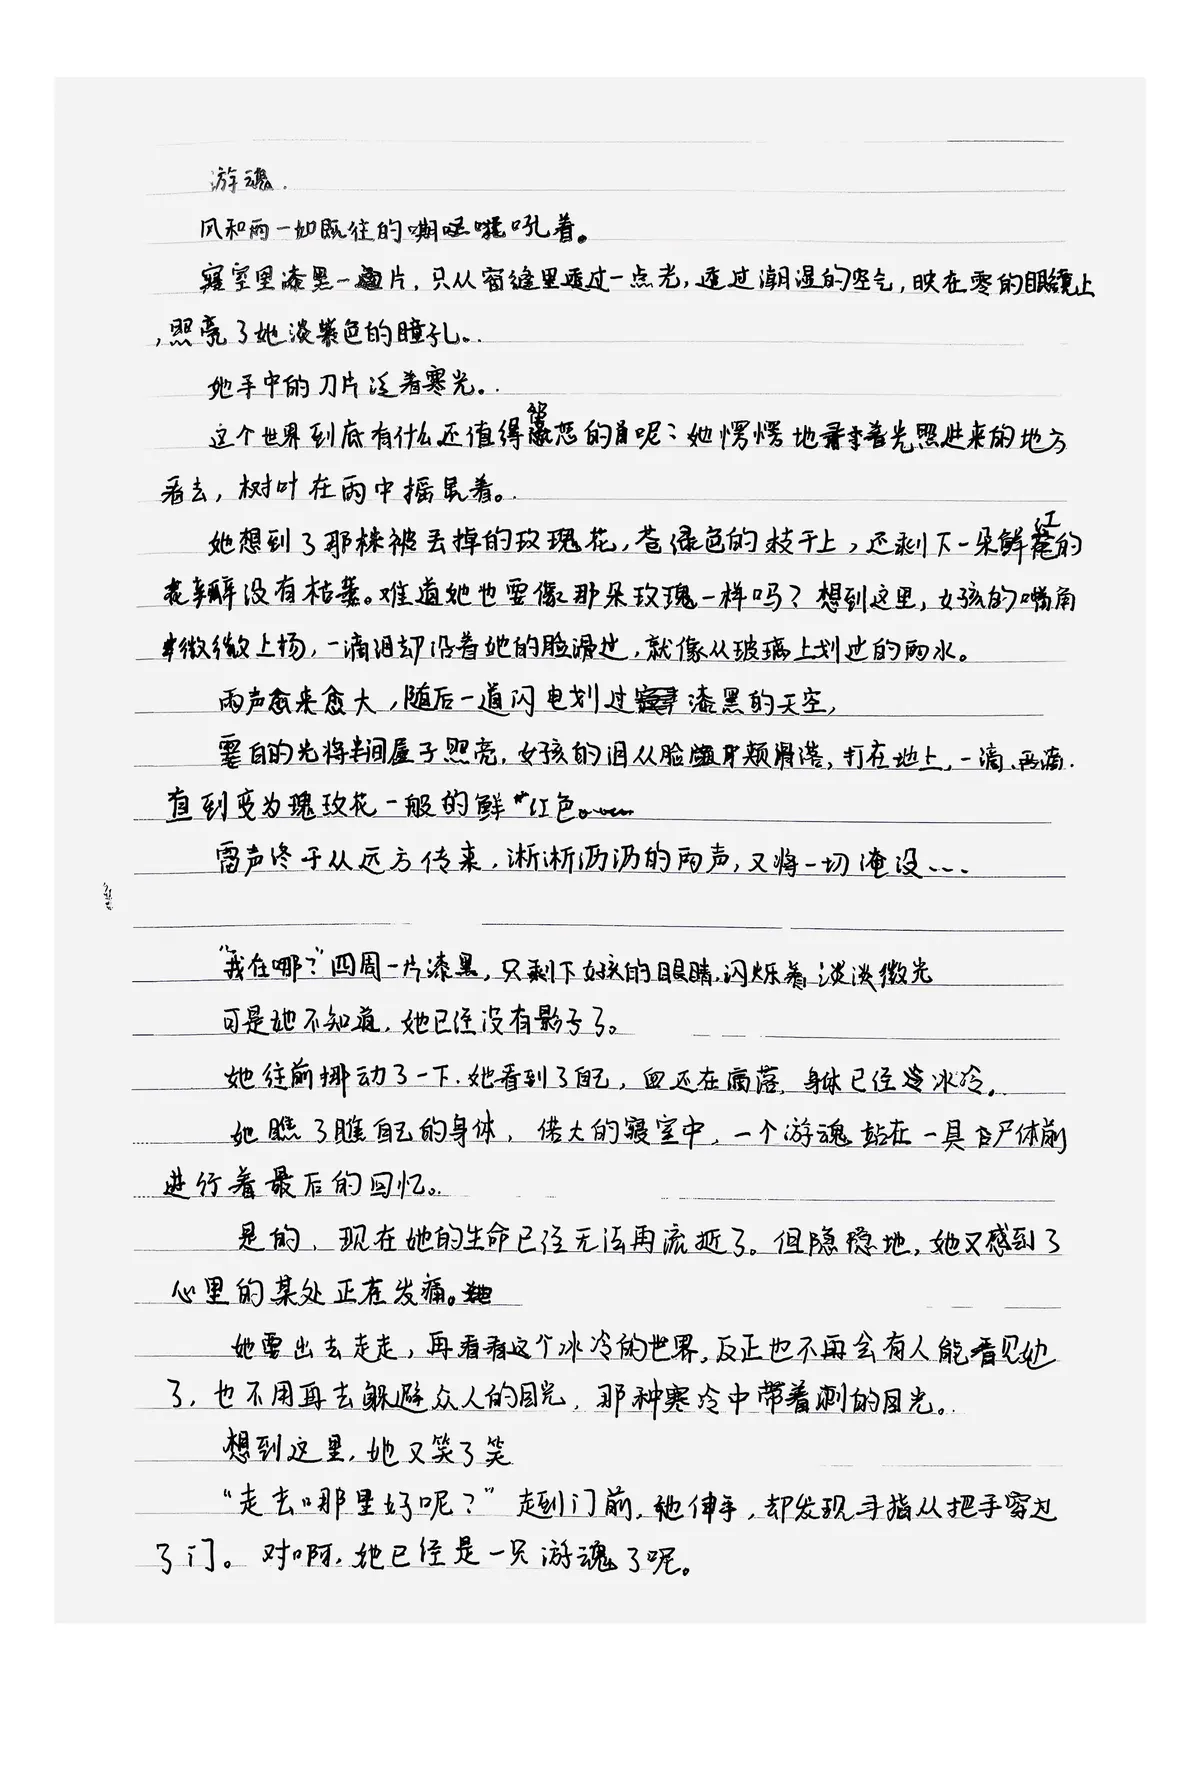 游魂.
风和雨一如既往的嘶吼着。
寝室里漆黑一片，只从窗缝里透过一点光，透过潮湿的空气，映在零的眼镜上
，照亮了她淡紫色的瞳孔。
她手中的刀片泛着寒光。
这个世界到底有什么还值得留恋的呢？她愣愣地看着光照进来的地方
看去，树叶在雨中摇晃着。
她想到了那株被丢掉的玫瑰花，苍绿色的枝干上，还剩下一朵鲜红的
花瓣没有枯萎。难道她也要像那朵玫瑰一样吗？想到这里，女孩的嘴角
微微上扬，一滴泪却沿着她的脸滑过，就像从玻璃上划过的雨水。
雨声愈来愈大，随后一道闪电划过漆黑的天空，
白的光将半间屋子照亮，女孩的泪从脸颊滑落，打在地上，一滴、两滴.
直到变为瑰玫花一般的鲜红色
雷声终于从远方传来，淅淅沥沥的雨声，又将一切淹没...
“我在哪？”四周一片漆黑，只剩下女孩的眼睛，闪烁着淡淡微光
可是她不知道，她已经没有影子了。
她往前挪动了一下.她看到了自己，血还在滴落，身体已经冰冷。
她瞧了瞧自己的身体，偌大的寝室中，一个游魂站在一具尸体前
进行着最后的回忆。
是的，现在她的生命已经无法再流逝了。但隐隐地，她又感到了
心里的某处正在发痛。
她要出去走走，再看看这个冰冷的世界，反正也不再会有人能看见她
了，也不用再去躲避众人的目光，那种寒冷中带着刺的目光。
想到这里，她又笑了笑
“走去哪里好呢？”走到门前，她伸手，却发现手指从把手穿过
了门。对啊，她已经是一只游魂了呢。